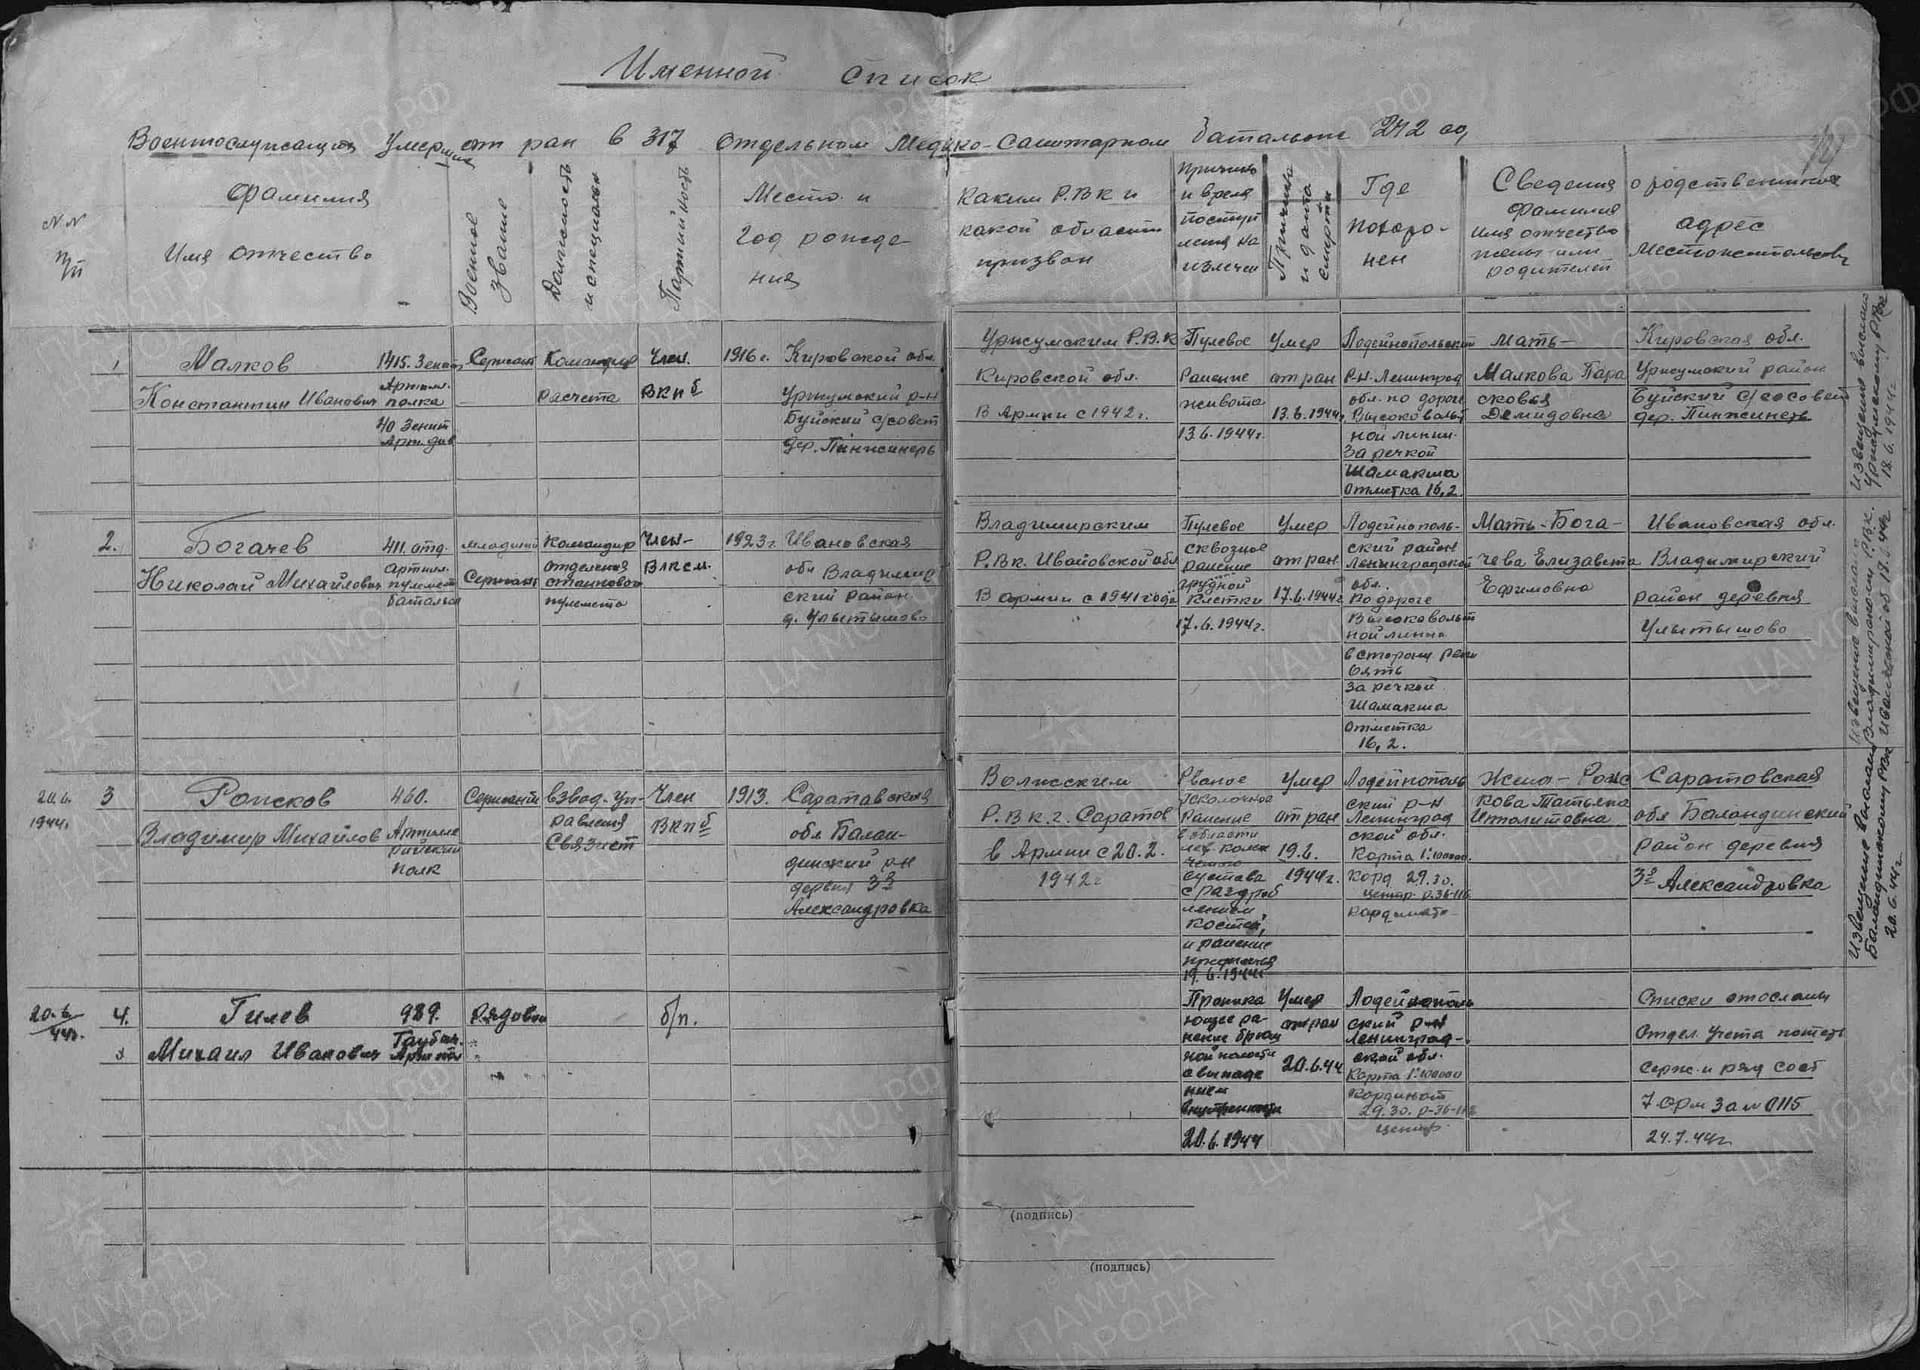 Именной список
Военнослужащих Умерших от ран в 317 Отдельном Медико-Санитарном батальоне 272 сд,
N.N п/п
Фамилия
Имя отчество
Военное звание
Должность и специальн
Партийность
Место и
год рожде
ния
Каким Р.В.К и
какой области
призван
Причина
и время
поступ
ления на
излечен
Причина и дата смерти
Где
похоро-
нен
Сведения о родственниках
Фамилия
имя отчество
жены или
родителей
адрес
местожительств
1
Малков
Константин Иванович
1415. Зенит
Артил.
полка
40 Зенит
Арт. див
Сержант
Командир
расчета
Член.
ВКПб
1916 г. Кировской обл.
Уржумский р-н
Буйский с/совет
дер. Пинжинерь
Уржумским Р.В.К
Кировской обл.
В Армии с 1942 г.
Пулевое
ранение
живота
13.6.1944г.
Умер
от ран
13.6.1944г.
Лодейнопольский
р-н. Ленинград
обл. по дороге
Высоковольт
ной линии.
За речкой
Шамакша
Отметка 16,2.
Мать-
Малкова Пара
сковья
Демидовна
Кировская обл.
Уржумский район
Буйский с/совет
дер. Пинжинерь
Извещение выслано
Уржумскому РВК
18.6.1944г.
2.
Богачев
Николай Михайлович
411. отд.
артил.
пулемет
батальон
младший
Сержант
Командир
отделения
станкового
пулемета
Член-
ВЛКСМ.
1923г. Ивановская
обл Владимир
ский район
д. Улытышово
Владимирским
Р.Вк. Ивановской обл
В армии с 1941 года
Пулевое
сквозное
ранение
грудной
клетки
17.6.1944г.
Умер
от ран
17.6.1944г
Лодейнополь-
ский район
Ленинградской
обл.
По дороге
Высоковольт
ной линии
в сторону реки
Оять
За речкой
Шамакша
Отметка
16,2.
Мать-Бога-
чева Елизавета
Ефимовна
Ивановская обл.
Владимирский
район деревня
Улытышово
Извещение выслано
Владимирскому Р.В.К.
Ивановской об 18.6.44г
20.6.
1944г.
3
Рожсков
Владимир Михайлов
460.
Артиле
рийский
полк
Сержант
взвод. уп-
равления
Связист
Член
ВКПб
1913. Саратавская
обл Балан-
динский рн
деревня 3я
Александровка
Волжским
Р.В.К.г. Саратов
в Армии с 20.2.
1942г
Рваное
осколочное
ранение
в области
лев колен
сустава
с раздроб
лением
костей,
и ранение
19.6.1944г
Умер
от ран
19.6.
1944г.
Лодейнополь
ский р-н
Ленинград
ской обл.
Карта 1:100000.
корд 29.30.
центр р.36-116
Жена-Рожс
кова Татьяна
Иполитовна
Саратовская
обл Баландинский
район деревня
3я Александровка
Извещение выслано
Баландинскому РВК
20.6.44г
20.6
44г.
4.
Гилев
Михаил Иванович
989.
Гаубич.
Арт пол
Рядовой
б/п.
Проника
ющее ра-
нение брюш
ной полости
с выпаде
нием
внутренности
20.6.1944
Умер
от ран
20.6.44
Лодейнополь
ский р-н
Ленинград-
ской обл.
Карта 1:100000
Кординат
29.30. р-36-116
центр.
Списки отосланы
Отдел. учета потерь
серж. и ряд сост
7 Арм За № 0115
24.7.44г
(подпись)
(подпись)
ПАМЯТЬ НАРОДА
ЦАМО.РФ